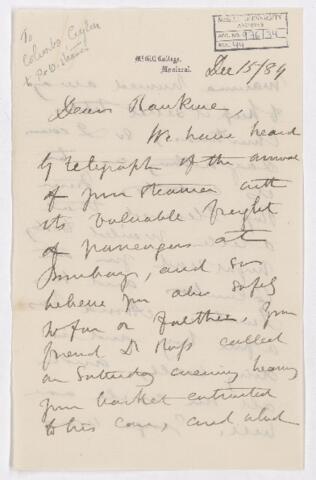 To
Colombo Ceylon
McGILL UNIVERSITY
ARCHIVES
ACC. NO. 936/34
REF. 44
McGill College,
Montreal.
Dec 15/84
Dear Rankine,
We have heard
by telegraph of the arrival
of your steamer with
its valuable freight
of passengers at
Bombay, and so
believe you also safely
so far on
friend Dr called
on Saturday evening bearing
your basket entrusted
to his care, and